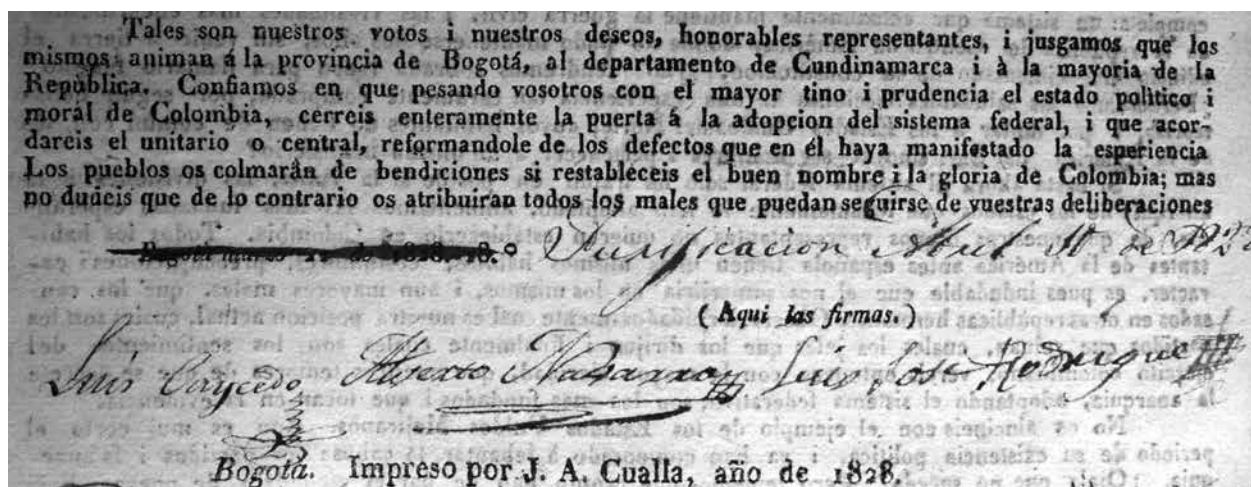 Tales son nuestros votos i nuestros deseos, honorables representantes, i jusgamos que los
mismos animan á la provincia de Bogotá, al departamento de Cundinamarca i à la mayoria de la
Repùblica. Confiamos en que pesando vosotros con el mayor tino i prudencia el estado polìtico i
moral de Colombia, cerreis enteramente la puerta á la adopcion del sistema federal, i que acor-
dareis el unitario o central, reformandole de los defectos que en él haya manifestado la esperiencia
Los pueblos os colmarán de bendiciones si restableceis el buen nombre i la gloria de Colombia; mas
no dudeis que de lo contrario os atribuiran todos los males que puedan seguirse de vuestras deliberaciones
Bogotá marzo de 1828. 18.º Purificacion Abril 10 de 1828
(Aqui las firmas.)
Luis Caycedo Alverto Navarro Luis Jose Rodrigue
Bogotá. Impreso por J. A. Cualla, año de 1828.